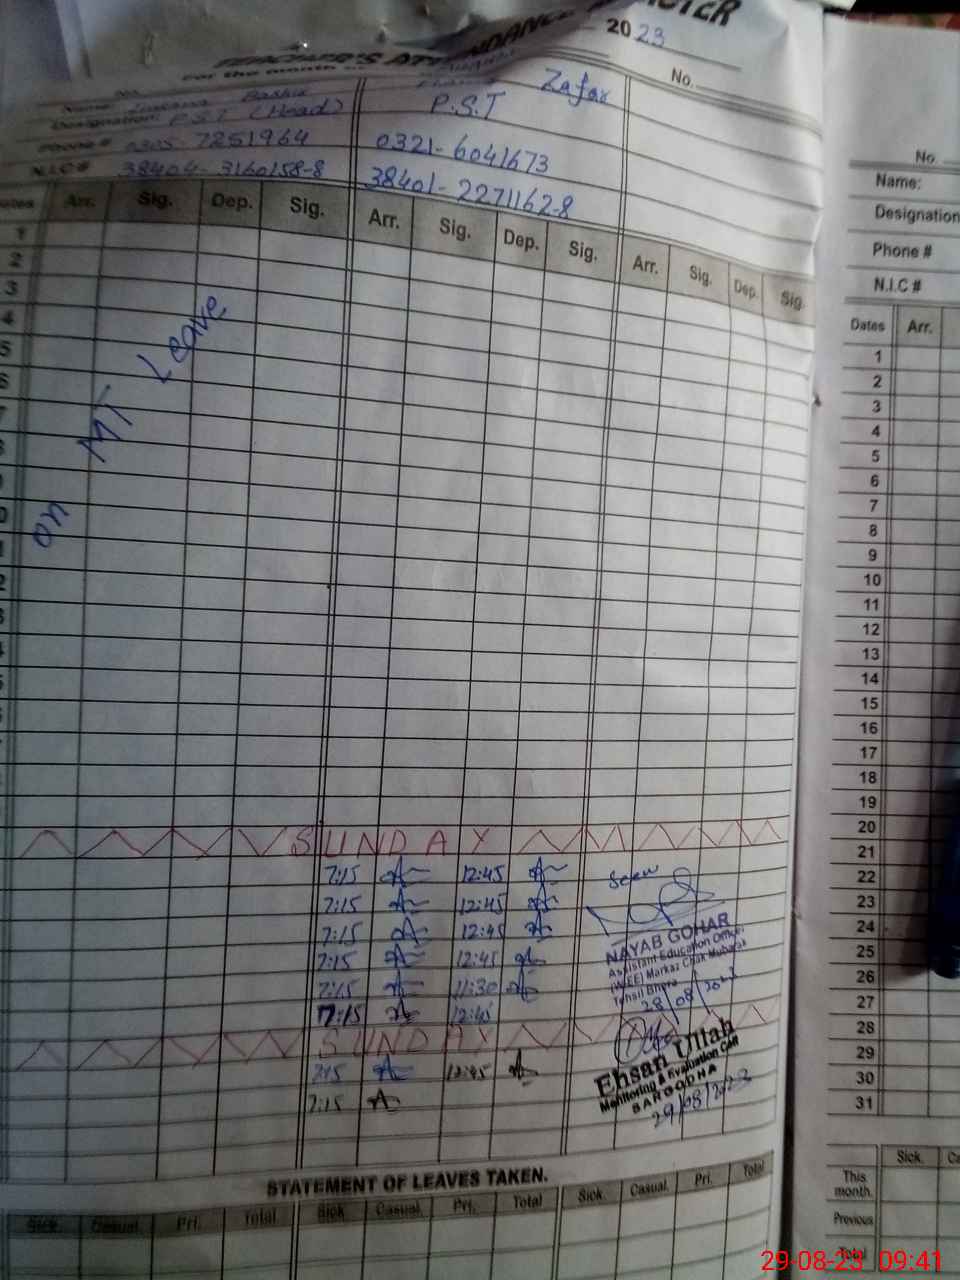 TEACHER'S ATTENDANCE REGISTER
For the month 2023
No.
Name: Zafar
Designation: P.S.T (Head) P.S.T
Phone # 0305-7251964 0321-6041673
N.I.C # 38404-3160158-8 38401-2271162-8
Arr. Sig. Dep. Sig. Arr. Sig. Dep. Sig. Arr. Sig. Dep. Sig.
1
2
3
4
5
6
on MT Leave
SUNDAY
7:15 12:45
7:15 12:45
7:15 12:45
7:15 12:45
7:15 11:30
7:15 12:45
SUNDAY
7:15 12:45
7:15
Seen
NAYAB GOHAR
Assistant Education Officer
(W-EE) Markaz Chak Mubarak
Tehsil Bhera
28/08/2023
Ehsan Ullah
Monitoring & Evaluation Cell
SARGODHA
29/08/2023
STATEMENT OF LEAVES TAKEN.
Sick. Casual. Pri. Total Sick. Casual. Pri. Total Sick. Casual. Pri. Total
No.
Name:
Designation
Phone #
N.I.C #
Dates Arr.
1
2
3
4
5
6
7
8
9
10
11
12
13
14
15
16
17
18
19
20
21
22
23
24
25
26
27
28
29
30
31
Sick.
This month.
Previous
Total
29-08-23 09:41